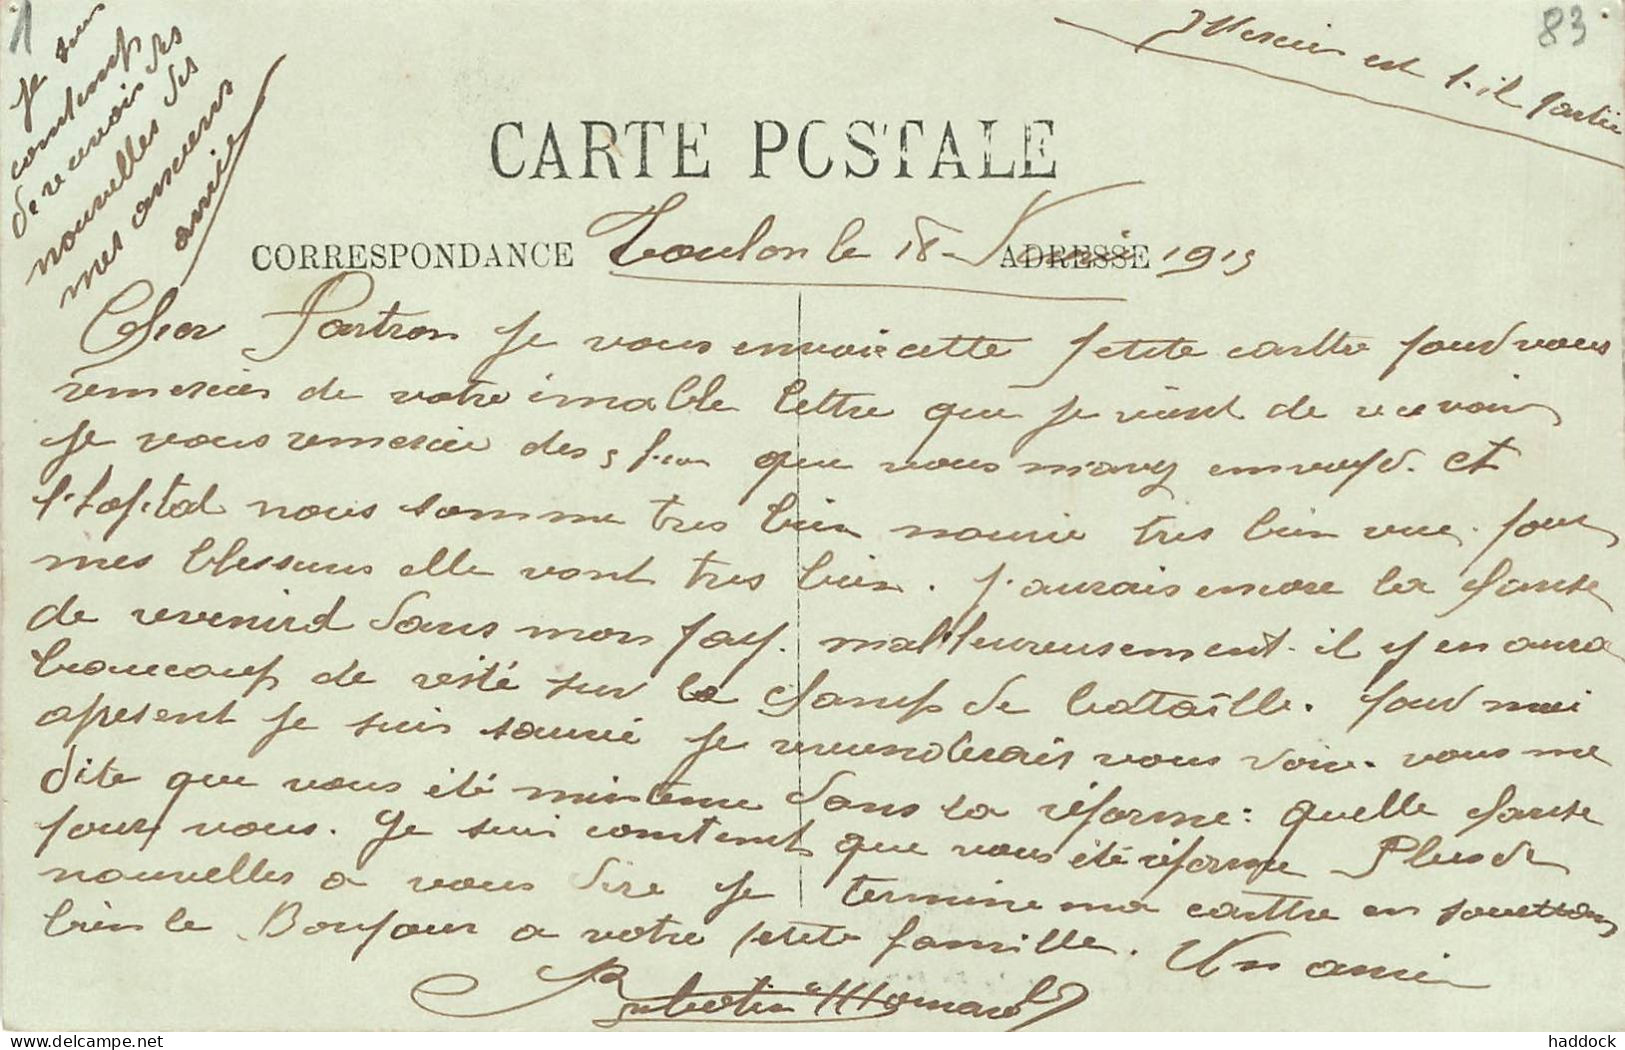 1
83
je suis
contemp
de recevoir des
nouvelles des
mes anciens
amie
Mercier est t-il partie
CARTE POSTALE
CORRESPONDANCE
ADRESSE
Toulon le 18 1915
Cher Partron je vous envoie cette petite cartte pourd vous
remercier de votre imable lettre que je vient de recevoir
je vous remercie des 5 f. que vous mavez envoyé. et
l'hopital nous somme tres bien nourie tres bien vue. pour
mes blessures elle vont tres bien. j'aurais encore la chanse
de revenird dans mon pay. malheureusement. il y en aura
beaucoup de resté sur la champ de bataille. pourd moi
apresent je suis sauvé je reviendrais vous voir. vous me
dite que vous été mintenu dans la réforme: quelle chanse
pour vous. je suis comtent que vous été réforme Plus de
nouvelles a vous dire je termine ma cartte en souettan
bien le Bonjour a votre petite famille. Un ami